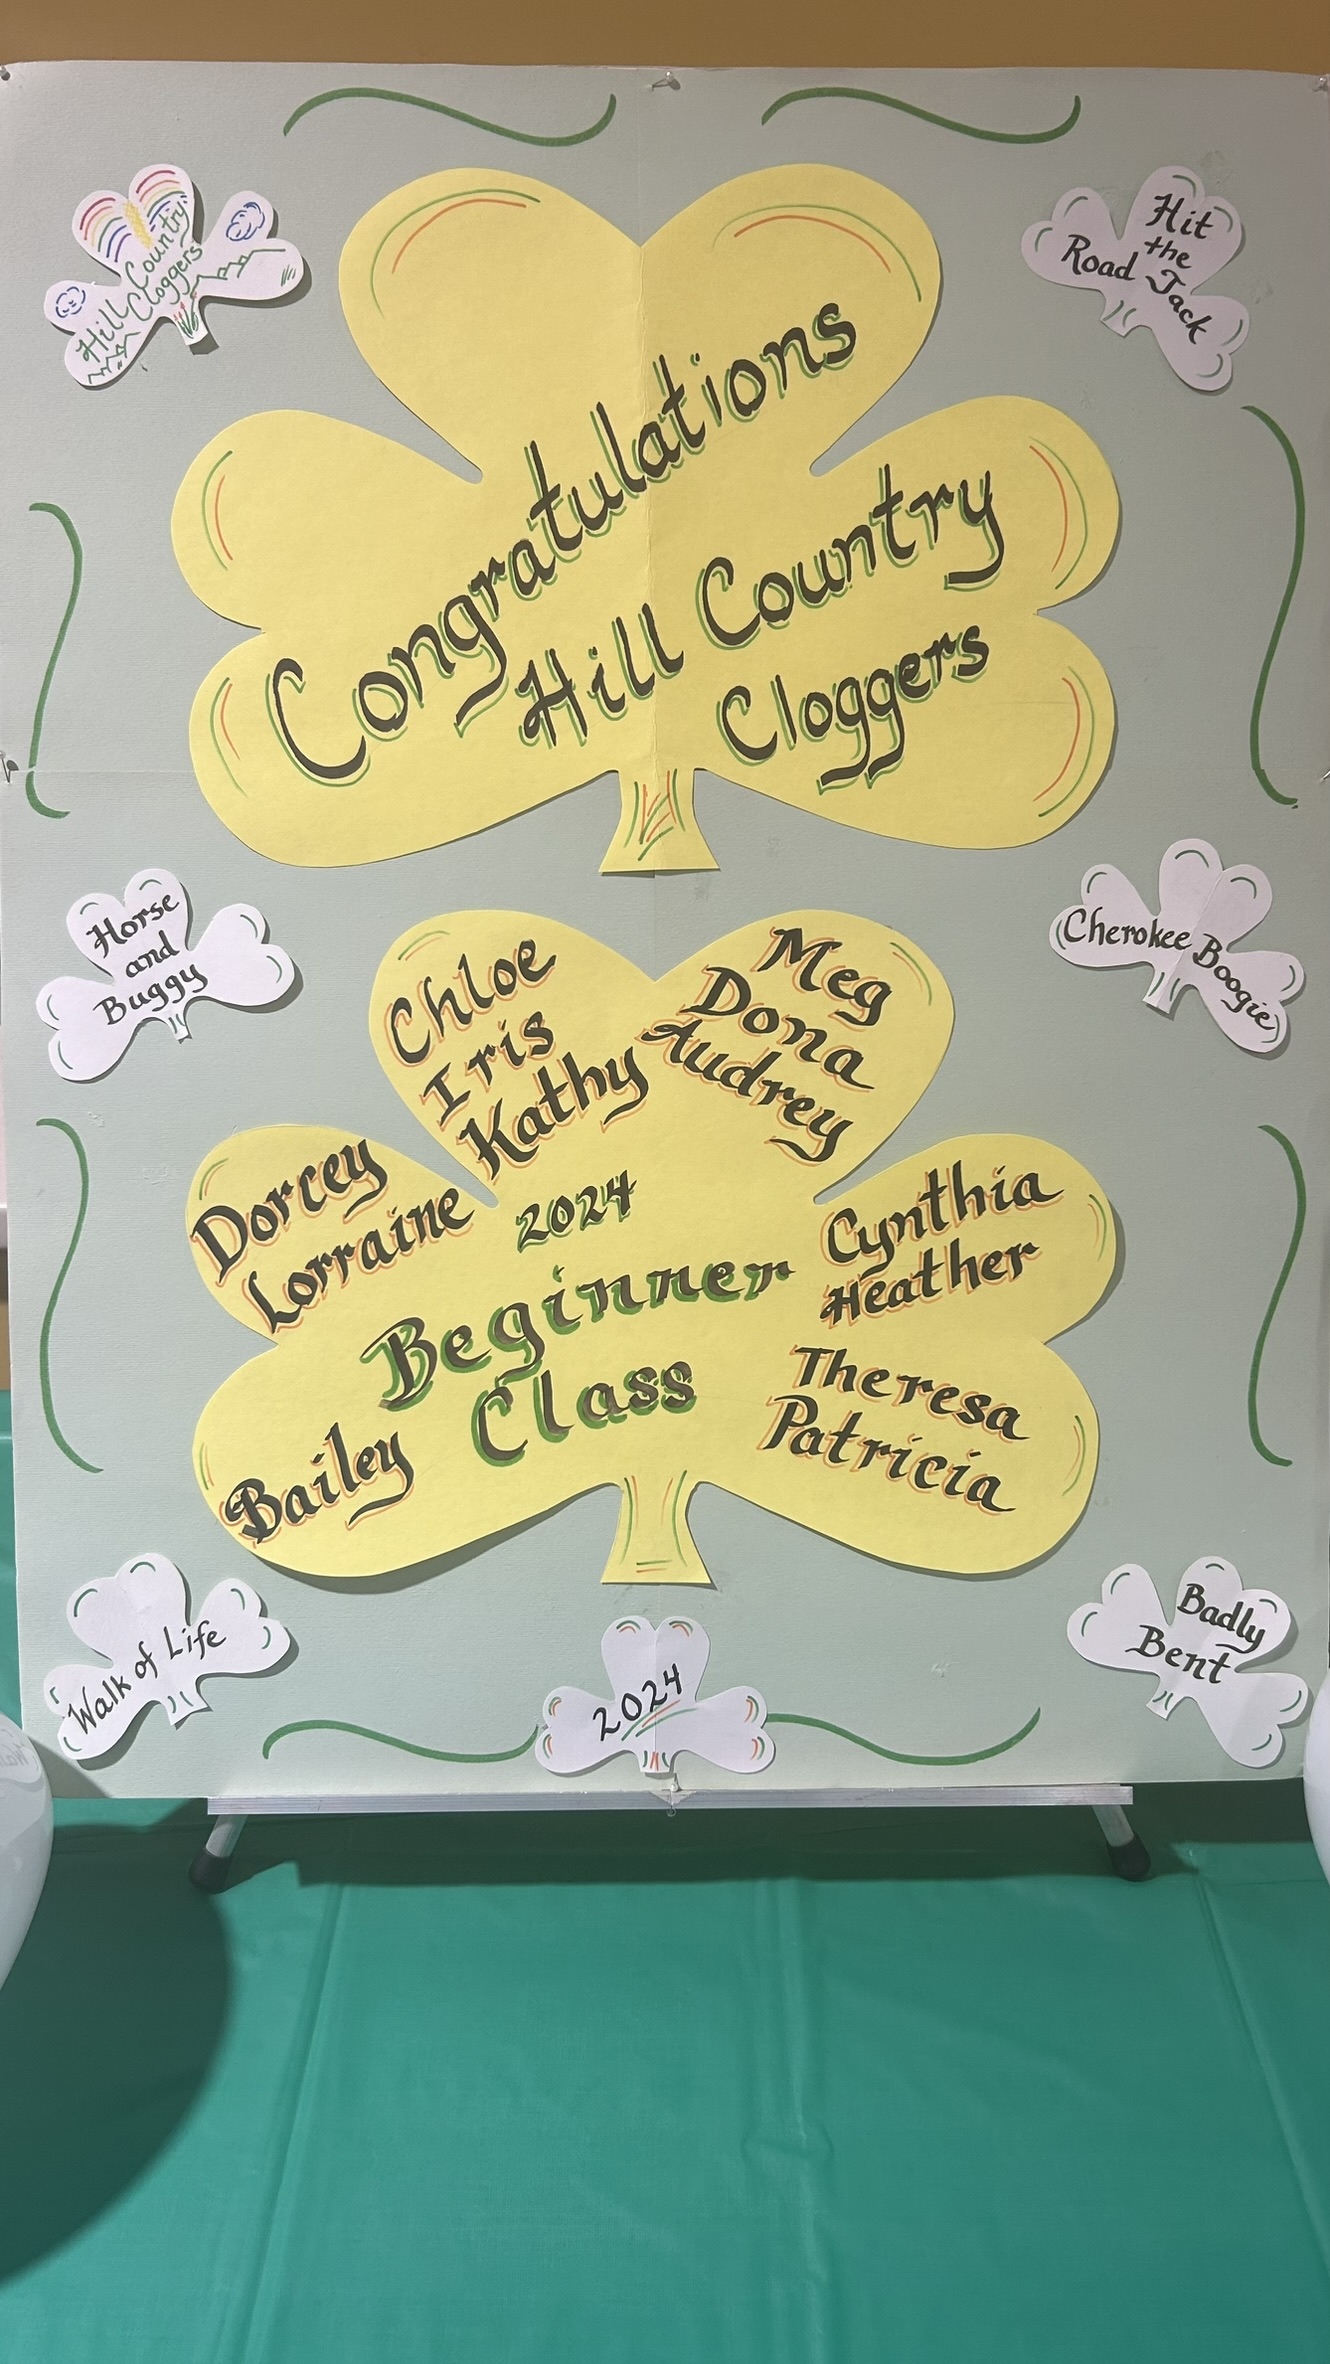 Hill Country
Cloggers
Hit
the
Road Jack
Congratulations
Hill Country
Cloggers
Horse
and
Buggy
Cherokee Boogie
Chloe
Iris
Kathy
Meg
Dona
Audrey
Dorcey
Lorraine
2024
Beginner
Class
Cynthia
Heather
Theresa
Patricia
Bailey
Walk of Life
2024
Badly
Bent